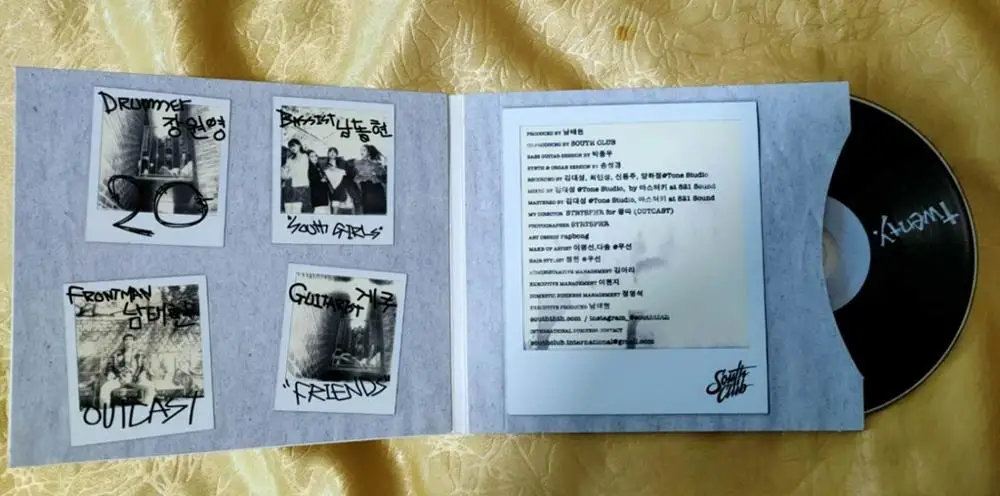 DRUMMER
장원영
20
BASSIST 남동현
"SOUTH GIRLS"
FRONTMAN
남태현
OUTCAST
GUITARIST
"FRIENDS
PRODUCED BY 남태현
CO-PRODUCED BY SOUTH CLUB
BASS GUITAR SESSION BY 박종우
SYNTH & ORGAN SESSION BY 송석경
RECORDED BY 김대성, 최민성, 신동주, 양하정@Tone Studio
MIXED BY 김대성 @Tone Studio, by 마스터키 at 821 Sound
MASTERED BY 김대성 @Tone Studio, 마스터키 at 821 Sound
MV DIRECTOR STRTSPHR for 몽따 (OUTCAST)
PHOTOGRAPHER STRTSPHR
ART DESIGN Papbong
MAKE-UP ARTIST 이명선,다솜 @우선
HAIR STYLIST 정현 @우선
ADMINISTRATIVE MANAGEMENT 김아리
EXECUTIVE MANAGEMENT 이현지
DOMESTIC BUSINESS MANAGEMENT 정영석
EXECUTIVE PRODUCER 남태현
southnth.com / instagram_@southnth
INTERNATIONAL BUSINESS CONTACT
southclub.international@gmail.com
South Club
twenty.